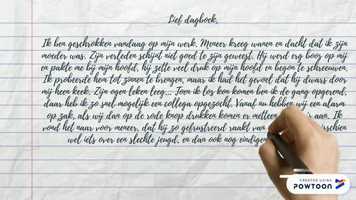 Lief dagboek,
Ik ben geschrokken vandaag op mijn werk. Meneer kreeg wanen en dacht dat ik zijn
moeder was. Zijn verleden schijnt niet goed te zijn geweest. Hij werd erg boos op mij
en pakte me bij mijn hoofd, hij zette veel druk op mijn hoofd en begon te schreeuwen.
Ik probeerde hem tot zinnen te brengen, maar ik had het gevoel dat hij dwars door
mij heen keek. Zijn ogen leken leeg... Toen ik los kon komen ben ik de gang opgerend,
daar heb ik zo snel mogelijk een collega opgezocht. Vanaf nu hebben wij een alarm
op zak, als wij dan op de rode knop drukken komen er meteen aan. Ik
vond het naar voor meneer, dat hij zo gefrustreerd raakt van
wel iets over een slechte jeugd, en dan ook nog eindigen
CREATED USING
POWTOON